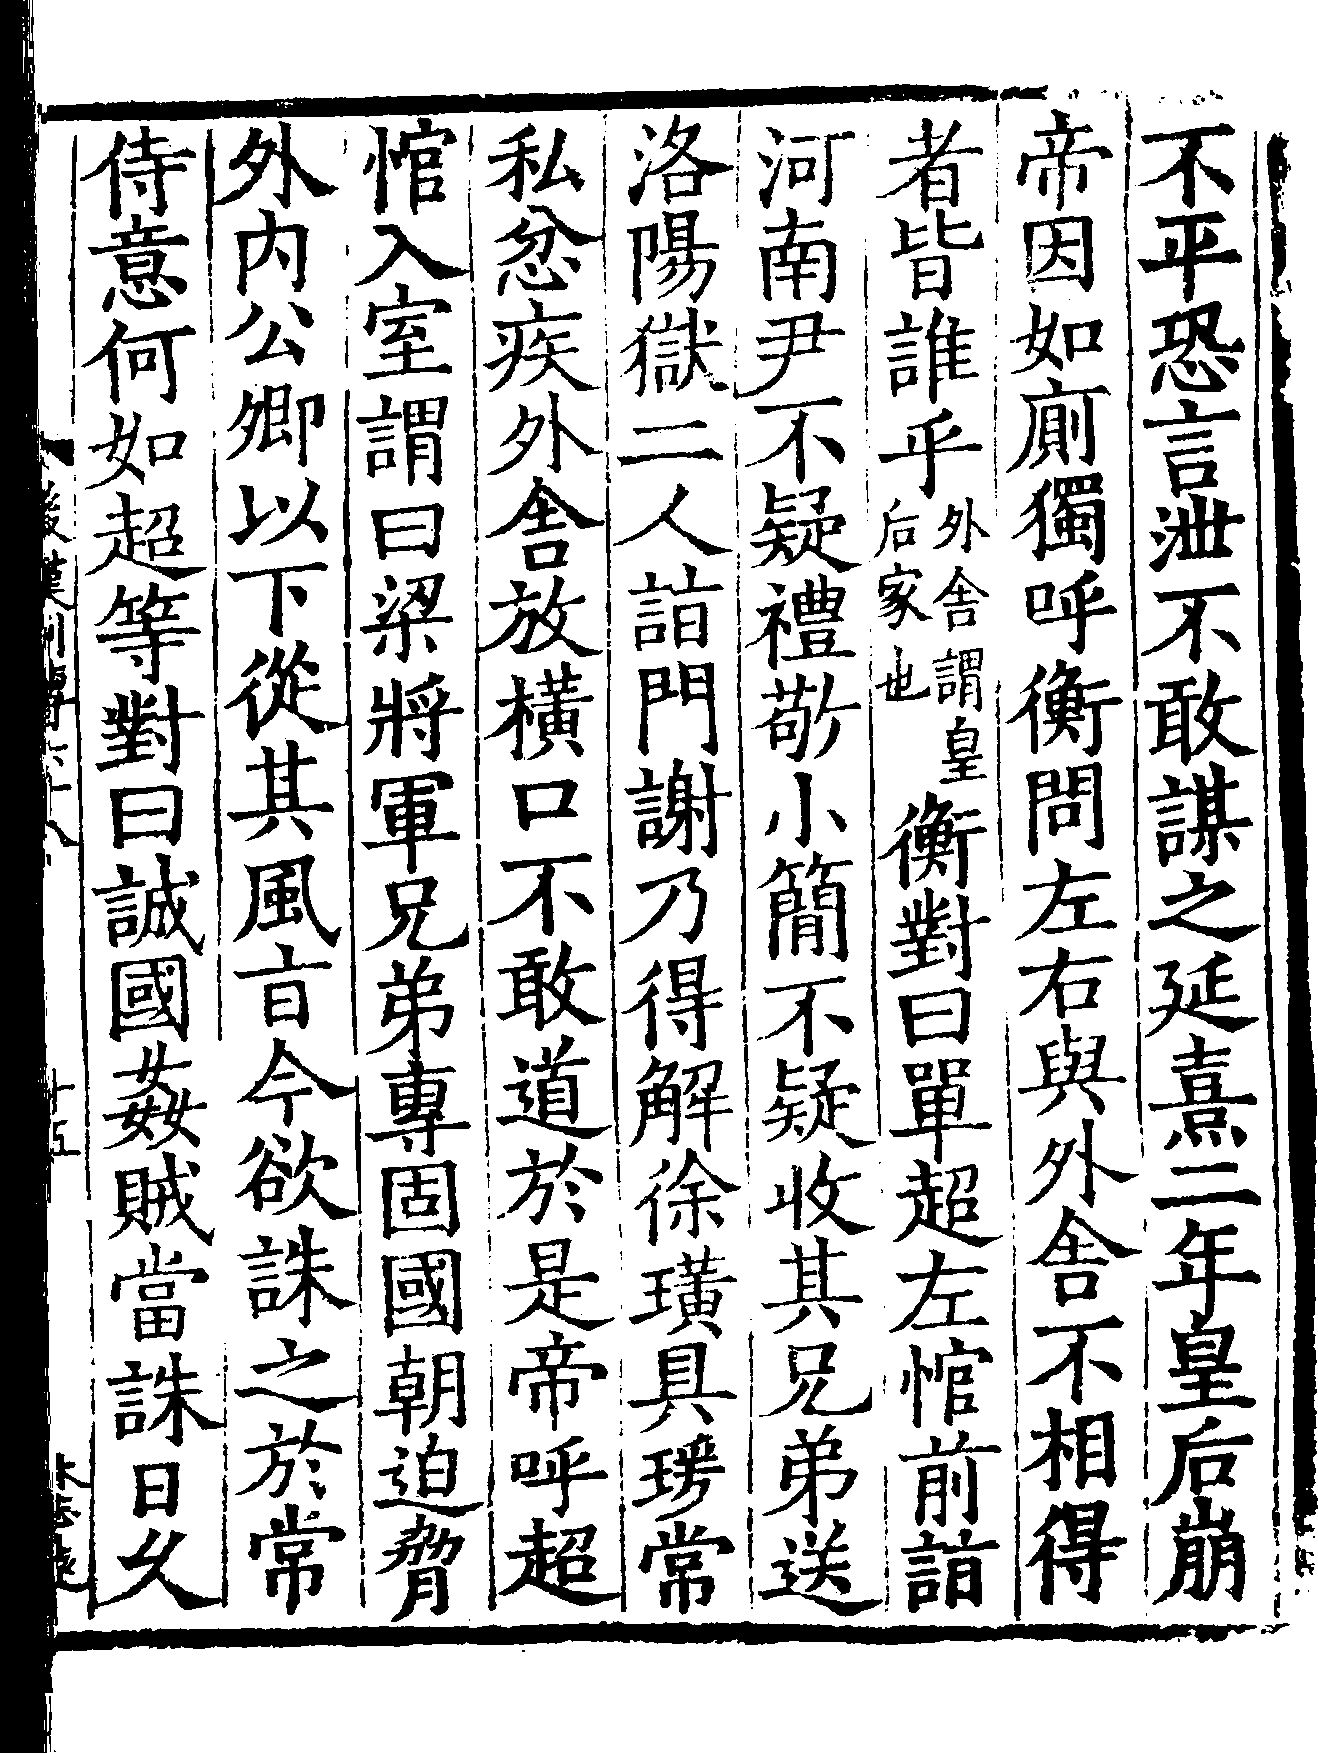 不平恐言泄不敢謀之延熹二年皇后崩
帝因如廁獨呼衡問左右與外舍不相得
者皆誰乎外舍謂皇后家也衡對曰單超左悺前詣
河南尹不疑禮敬小簡不疑收其兄弟送
洛陽獄二人詣門謝乃得解徐璜具瑗常
私忿疾外舍放橫口不敢道於是帝呼超
悺入室謂曰梁將軍兄弟專固國朝迫脅
外內公卿以下從其風旨今欲誅之於常
侍意何如超等對曰誠國姦賊當誅日久
後漢列傳六十八
十五